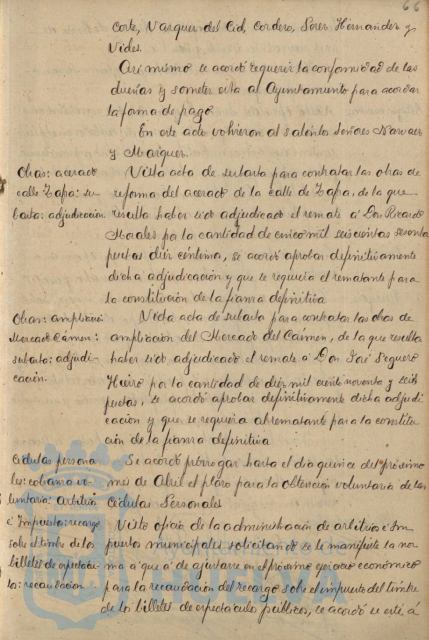 66
Corte, Vazquez del Cid, Cordero, Sorer Hernandez y
Vides.
Asi mismo se acordó requerir la conformidad de las
dueñas y someter esta al Ayuntamiento para acordar
la forma de pago
En este acto volvieron al salón los Señores Narvaez
y Marquez.
Obras: acerado
calle Zapa: su-
basta: adjudicación.
Vista acta de subasta para contratar las obras de
reforma del acerado de la calle de Zapa, de la que
resulta haber sido adjudicado el remate á Don Ricardo
por la cantidad de cinco mil seiscientas sesenta
pesetas diez céntimos, se acordó aprobar definitivamente
dicha adjudicación y que se requiera el rematante para
la constitución de la fianza definitiva
Obras: ampliación
Mercado Cármen:
subasta: adjudi-
cación.
Vista acta de subasta para contratar las obras de
ampliación del Mercado del Cármen, de la que resulta
haber sido adjudicado el remate á Don José Seguero
por la cantidad de diez mil ciento noventa y seis
pesetas, se acordó aprobar definitivamente dicha adjudi-
cación y que se requiera al rematante para la constitu-
ción de la fianza definitiva
Cédulas persona-
les: cobranza vo-
luntaria: Arbitrios
é Impuestos: recargo
sobre el timbre de los
billetes de espectácu-
los: recaudación
Se acordó prorrogar hasta el dia quince del próximo
mes de Abril el plazo para la obtención voluntaria de las
Cédulas Personales
Visto oficio de la administración de arbitrios é Im-
puestos municipales solicitando se le manifieste la nor-
ma á que á de ajustarse en el próximo ejercicio económico
para la recaudación del recargo sobre el impuesto del timbre
de los billetes de espectáculos públicos, se acordó se esté á
HUELVA